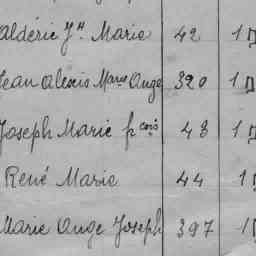 aldéric Jh Marie 42 1
Jean Alexis Marie Ange 320 1
Joseph Marie fcois 43 1
René Marie 44 1
Marie Ange Joseph 397 1